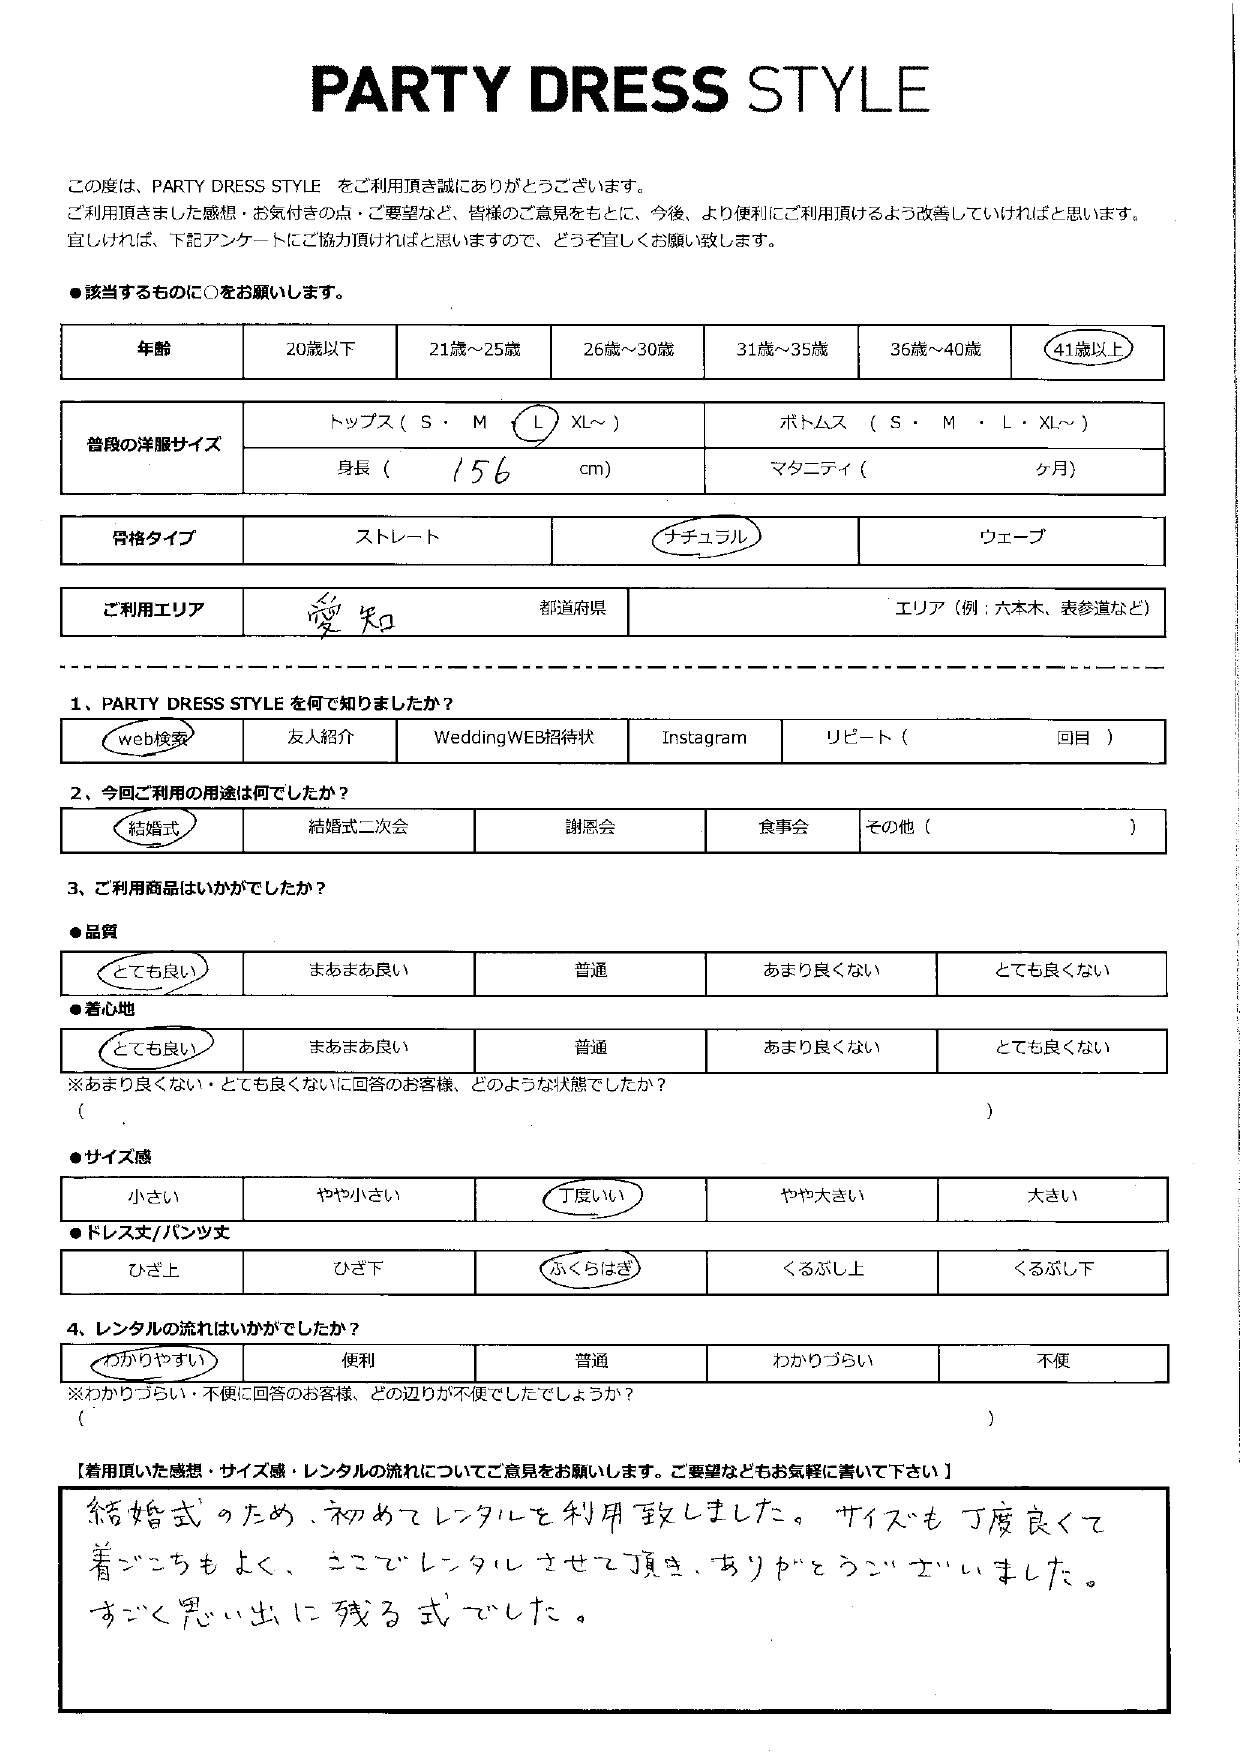 PARTY DRESS STYLE
この度は、PARTY DRESS STYLE をご利用頂き誠にありがとうございます。
ご利用頂きました感想・お気付きの点・ご要望など、皆様のご意見をもとに、今後、より便利にご利用頂けるよう改善していければと思います。
宜しければ、下記アンケートにご協力頂ければと思いますので、どうぞ宜しくお願い致します。
●該当するものに○をお願いします。
年齢 20歳以下 21歳～25歳 26歳～30歳 31歳～35歳 36歳～40歳 41歳以上
普段の洋服サイズ
トップス ( S ・ M ・ L XL～ ) ボトムス ( S ・ M ・ L ・ XL～ )
身長 ( 156 cm) マタニティ ( ケ月)
骨格タイプ ストレート ナチュラル ウェーブ
ご利用エリア 愛知 都道府県 エリア（例；六本木、表参道など）
1、PARTY DRESS STYLE を何で知りましたか？
web検索 友人紹介 WeddingWEB招待状 Instagram リピート ( 回目 )
2、今回ご利用の用途は何でしたか？
結婚式 結婚式二次会 謝恩会 食事会 その他 ( )
3、ご利用商品はいかがでしたか？
●品質
とても良い まあまあ良い 普通 あまり良くない とても良くない
●着心地
とても良い まあまあ良い 普通 あまり良くない とても良くない
※あまり良くない・とても良くないに回答のお客様、どのような状態でしたか？
( )
●サイズ感
小さい やや小さい 丁度いい やや大きい 大きい
●ドレス丈/パンツ丈
ひざ上 ひざ下 ふくらはぎ くるぶし上 くるぶし下
4、レンタルの流れはいかがでしたか？
わかりやすい 便利 普通 わかりづらい 不便
※わかりづらい・不便に回答のお客様、どの辺りが不便でしたでしょうか？
( )
【着用頂いた感想・サイズ感・レンタルの流れについてご意見をお願いします。ご要望などもお気軽に書いて下さい】
結婚式のため、初めてレンタルを利用致しました。サイズも丁度良くて
着ごこちもよく、ここでレンタルさせて頂き、ありがとうございました。
すごく思い出に残る式でした。